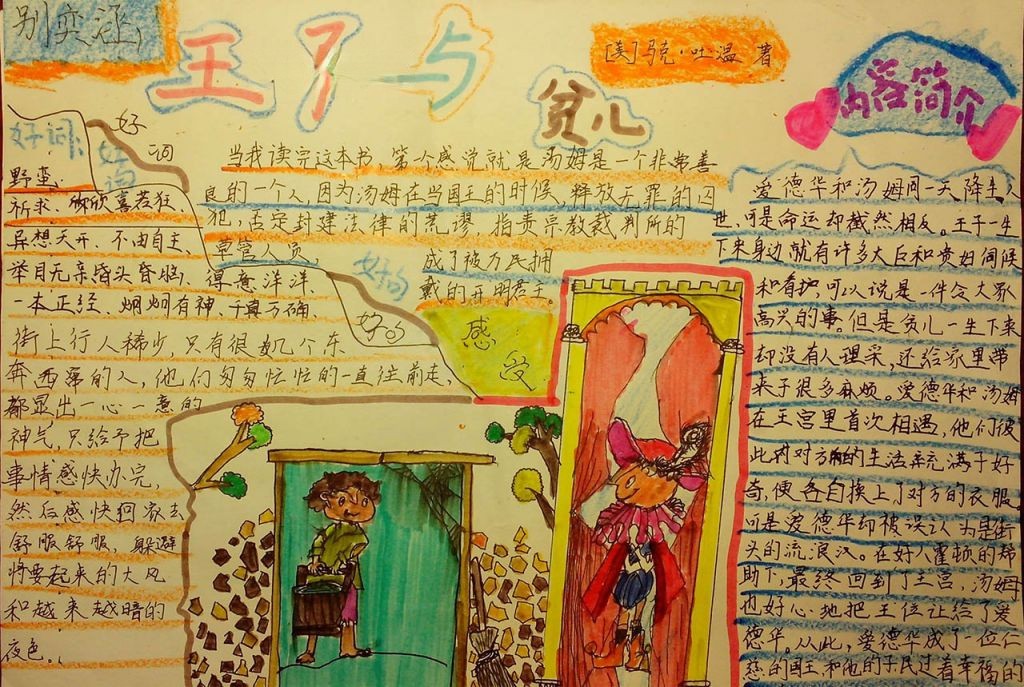 别奕涵
王子与
贫儿
[美]马克·吐温 著
内容简介
好词
好
词
野蛮、
祈求、欣喜若狂、
异想天开、不由自主、
举目无亲昏头昏脑、得意洋洋、
一本正经、炯炯有神、千真万确、
好句
好句
街上行人稀少,只有很少几个东
奔西荡的人,他们匆匆忙忙的一直往前走,
都显出一心一意的
神气,只给予把
事情感快办完,
然后感快回家去
舒服舒服,躲避
将要起来的大风
和越来越暗的
夜色。
当我读完这本书,第个感觉就是汤姆是一个非常善
良的一个人,因为汤姆在当国王的时候,释放无罪的囚
犯,否定封建法律的荒谬,指责宗教裁判所的
掌管人员,成了被万民拥
戴的开明君主。
感
受
爱德华和汤姆同一天降生人
世,可是命运却截然相反。王子一生
下来身边就有许多大臣和贵妇伺候
和看护,可以说是一件令大家
高兴的事。但是贫儿一生下来
却没有人理采,还给家里带
来了很多麻烦。爱德华和汤姆
在王宫里首次相遇,他们彼
此对对方的生活充满了好
奇,便各自换上了对方的衣服
可是爱德华却被误认为是街
头的流浪汉。在好人霍顿的帮
助下,最终回到了王宫,汤姆
也好心地把王位让给了爱
德华。从此,爱德华成了一位仁
慈的国王和他的子民过着幸福的